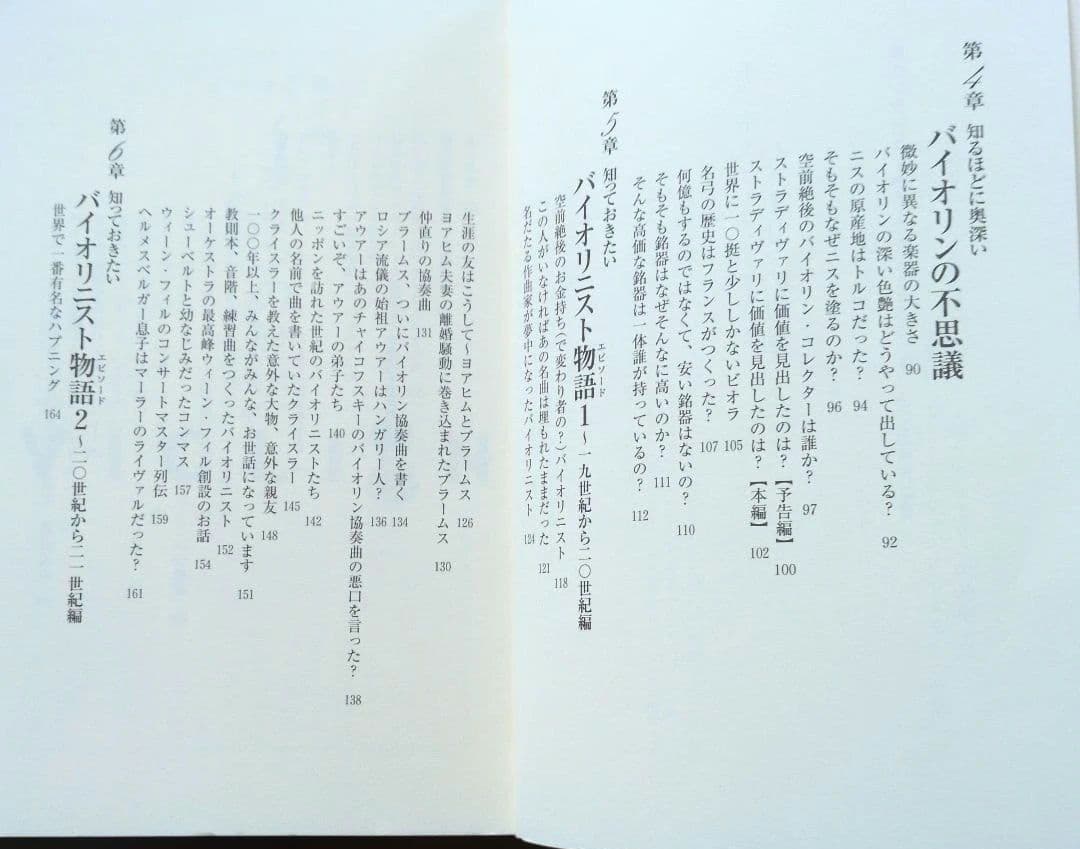 第4章 知るほどに奥深い
バイオリンの不思議
微妙に異なる楽器の大きさ 90
バイオリンの深い色艶はどうやって出している? 92
ニスの原産地はトルコだった? 94
そもそもなぜニスを塗るのか? 96
空前絶後のバイオリン・コレクターは誰か? 97
ストラディヴァリに価値を見出したのは?【予告編】 100
ストラディヴァリに価値を見出したのは?【本編】 102
世界に一〇挺と少ししかないビオラ 105
名弓の歴史はフランスがつくった? 107
何億もするのではなくて、安い銘器はないの? 110
そもそも銘器はなぜそんなに高いのか? 111
そんな高価な銘器は一体誰が持っているの? 112
第5章 知っておきたい
バイオリニスト物語1〜一九世紀から二〇世紀編
エピソード
空前絶後のお金持ち(で変わり者の?)バイオリニスト 118
この人がいなければあの名曲は埋もれたままだった 121
名だたる作曲家が夢中になったバイオリニスト 124
生涯の友はこうして〜ヨアヒムとブラームス 126
ヨアヒム夫妻の離婚騒動に巻き込まれたブラームス 130
仲直りの協奏曲 131
ブラームス、ついにバイオリン協奏曲を書く 134
ロシア流儀の始祖アウアーはハンガリー人? 136
アウアーはあのチャイコフスキーのバイオリン協奏曲の悪口を言った? 138
すごいぞ、アウアーの弟子たち 140
ニッポンを訪れた世紀のバイオリニストたち 142
他人の名前で曲を書いていたクライスラー 145
クライスラーを教えた意外な大物、意外な親友 148
一〇〇年以上、みんながみんな、お世話になっています 151
教則本、音階、練習曲をつくったバイオリニスト 152
オーケストラの最高峰ウィーン・フィル創設のお話 154
シューベルトと幼なじみだったコンマス 157
ウィーン・フィルのコンサートマスター列伝 159
ヘルメスベルガー息子はマーラーのライヴァルだった? 161
第6章 知っておきたい
バイオリニスト物語2〜二〇世紀から二一世紀編
エピソード
世界で一番有名なハプニング 164